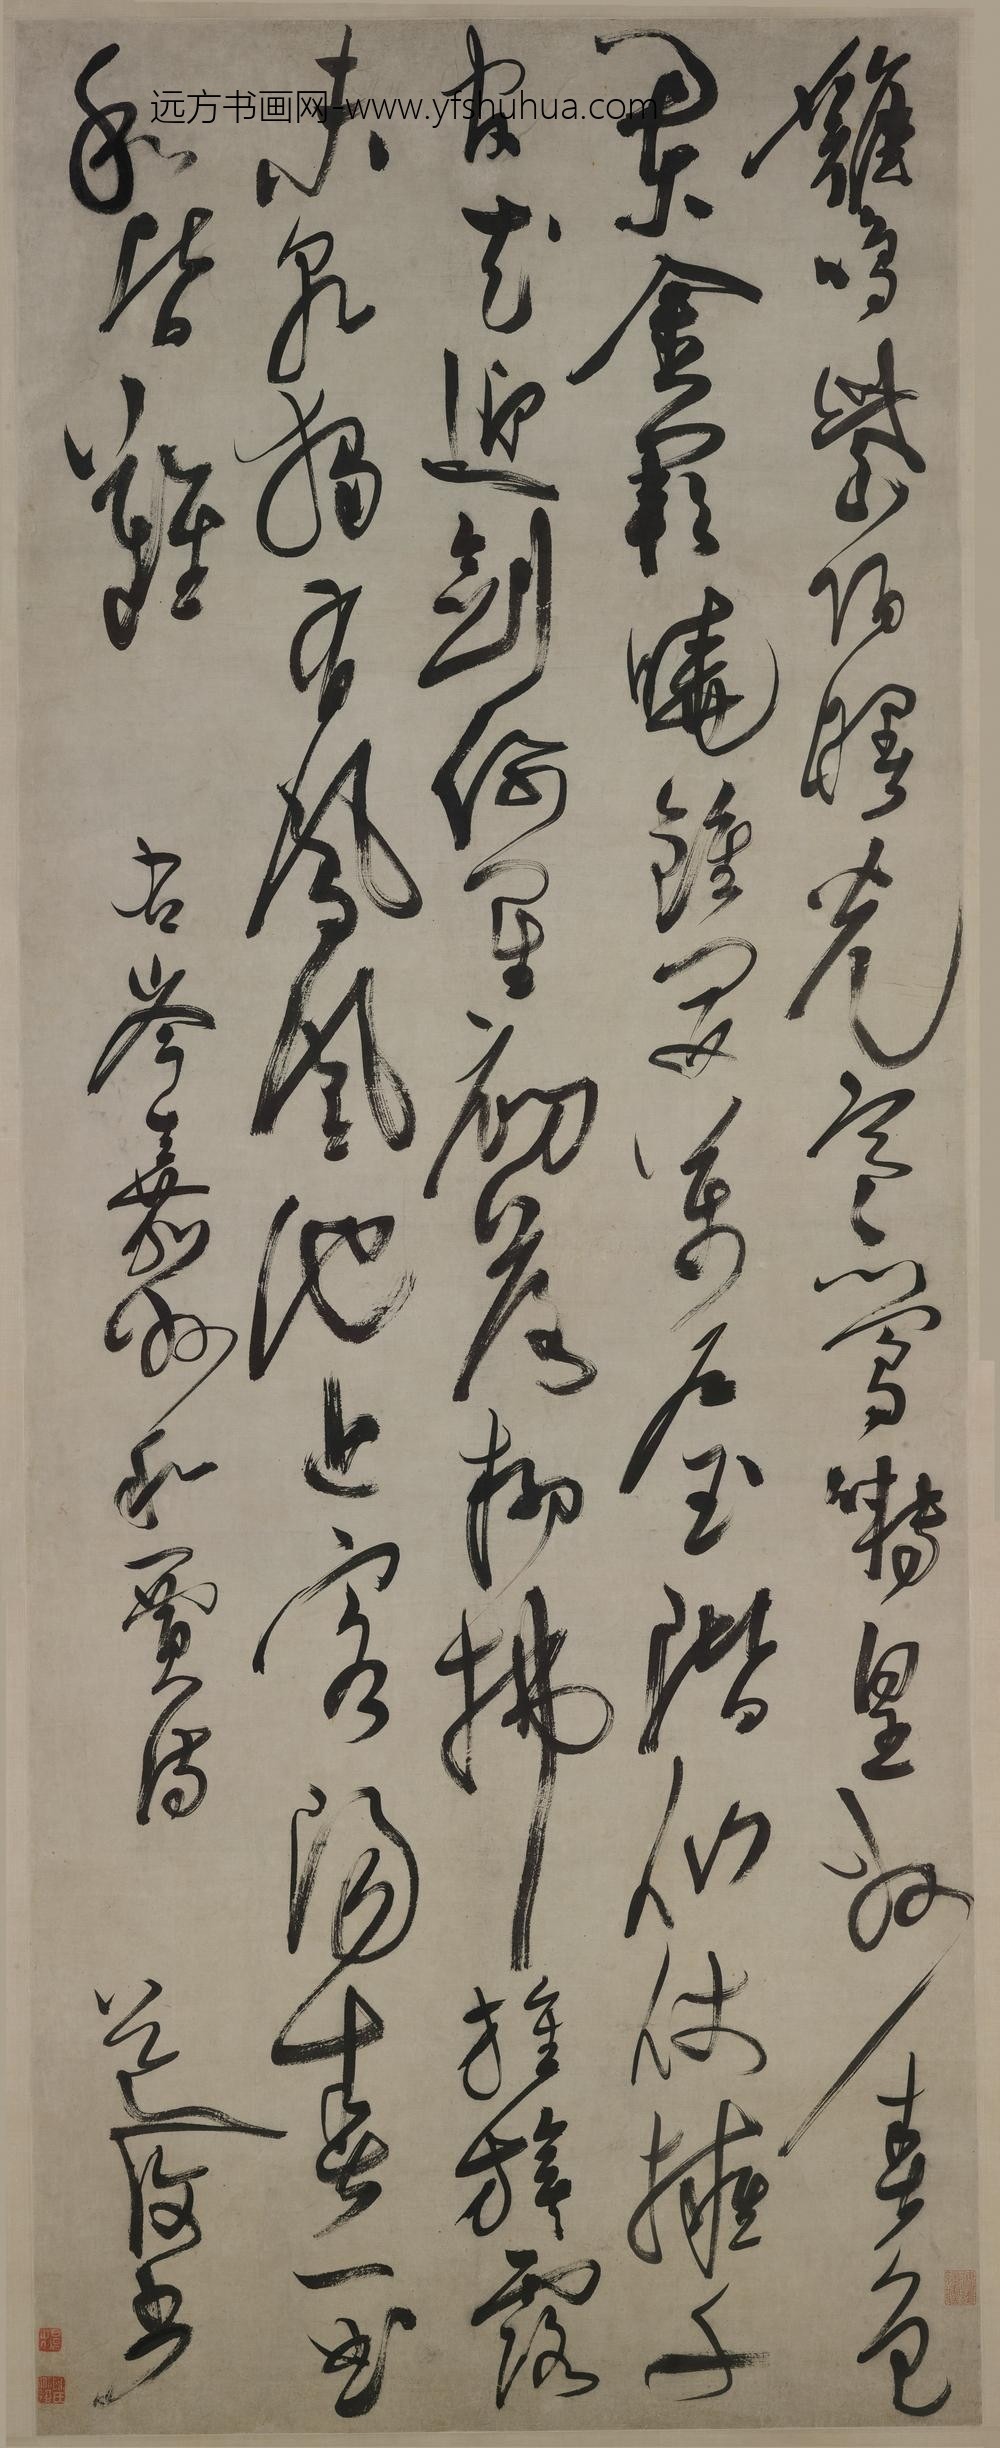 远方书画网-www.yfshuhua.com
雞鳴紫陌曙光寒鶯囀皇州春色
闌金闕曉鐘開萬戶玉階仙仗擁千
官花迎劍佩星初落柳拂旌旗露
未乾獨有鳳凰池上客陽春一曲
和皆難 右岑嘉州和賈詩 道復書